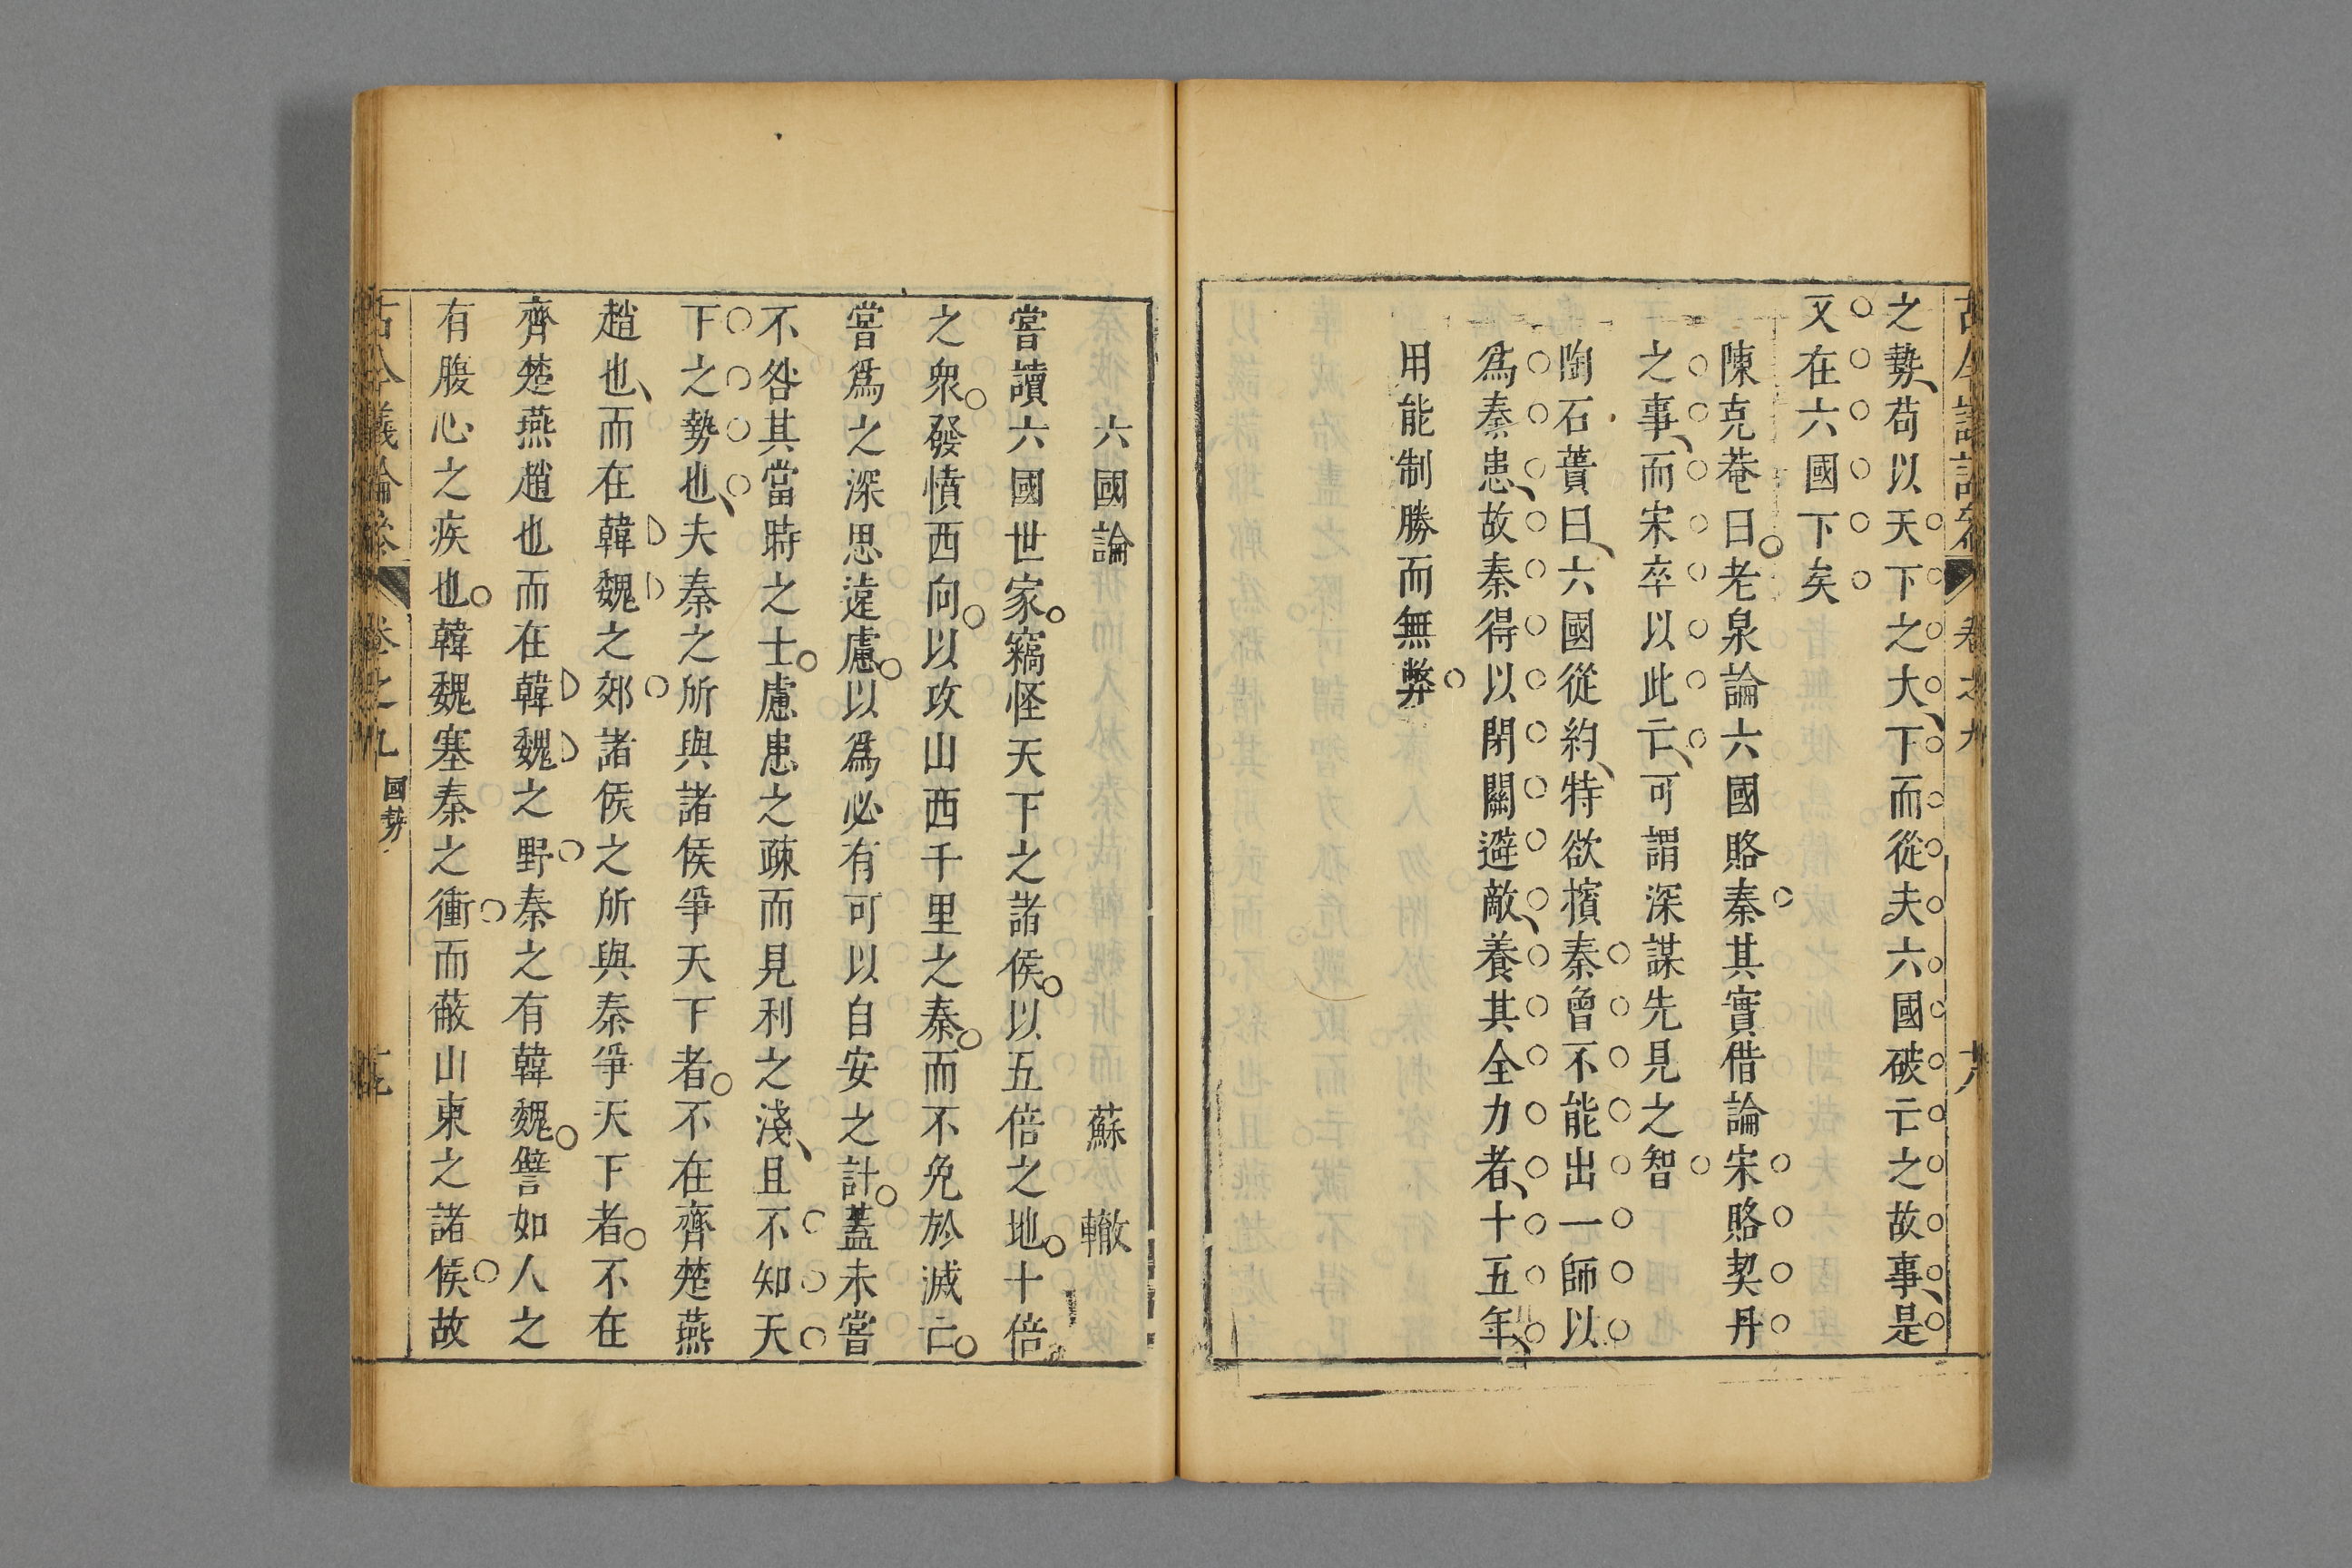 之勢苟以天下之大下而從夫六國破亡之故事是
又在六國下矣
陳克菴曰老泉論六國賂秦其實借論宋賂契丹
之事而宋卒以此亡可謂深謀先見之智
陶石蕢曰六國從約特欲擯秦曾不能出一師以
爲秦患故秦得以閉關避敵養其全力者十五年
用能制勝而無弊
六國論 蘇轍
嘗讀六國世家竊怪天下之諸侯以五倍之地十倍
之衆發憤西向以攻山西千里之秦而不免於滅亡
嘗爲之深思遠慮以爲必有可以自安之計蓋未嘗
不咎其當時之士慮患之疎而見利之淺且不知天
下之勢也夫秦之所與諸侯爭天下者不在齊楚燕
趙也而在韓魏之郊諸侯之所與秦爭天下者不在
齊楚燕趙也而在韓魏之野秦之有韓魏譬如人之
有腹心之疾也韓魏塞秦之衝而蔽山東之諸侯故
古今議論參 卷之九 國勢